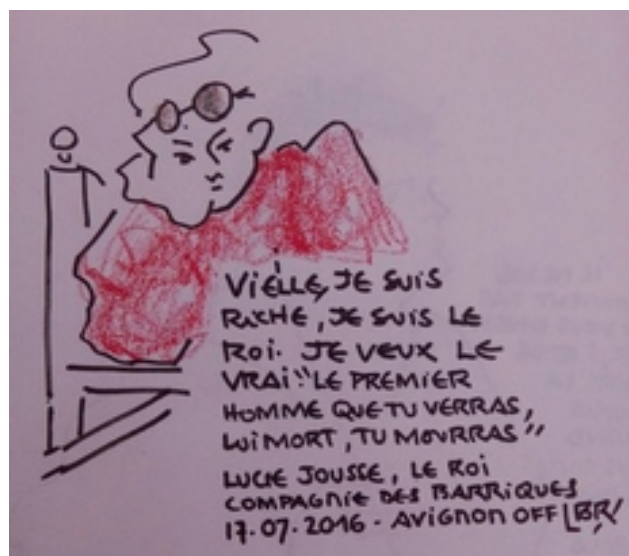 VIEILLE, JE SUIS
RICHE, JE SUIS LE
ROI. JE VEUX LE
VRAI: "LE PREMIER
HOMME QUE TU VERRAS,
LUI MORT, TU MOURRAS"
LUCIE JOUSSE, LE ROI
COMPAGNIE DES BARRIQUES
17.07.2016 - AVIGNON OFF